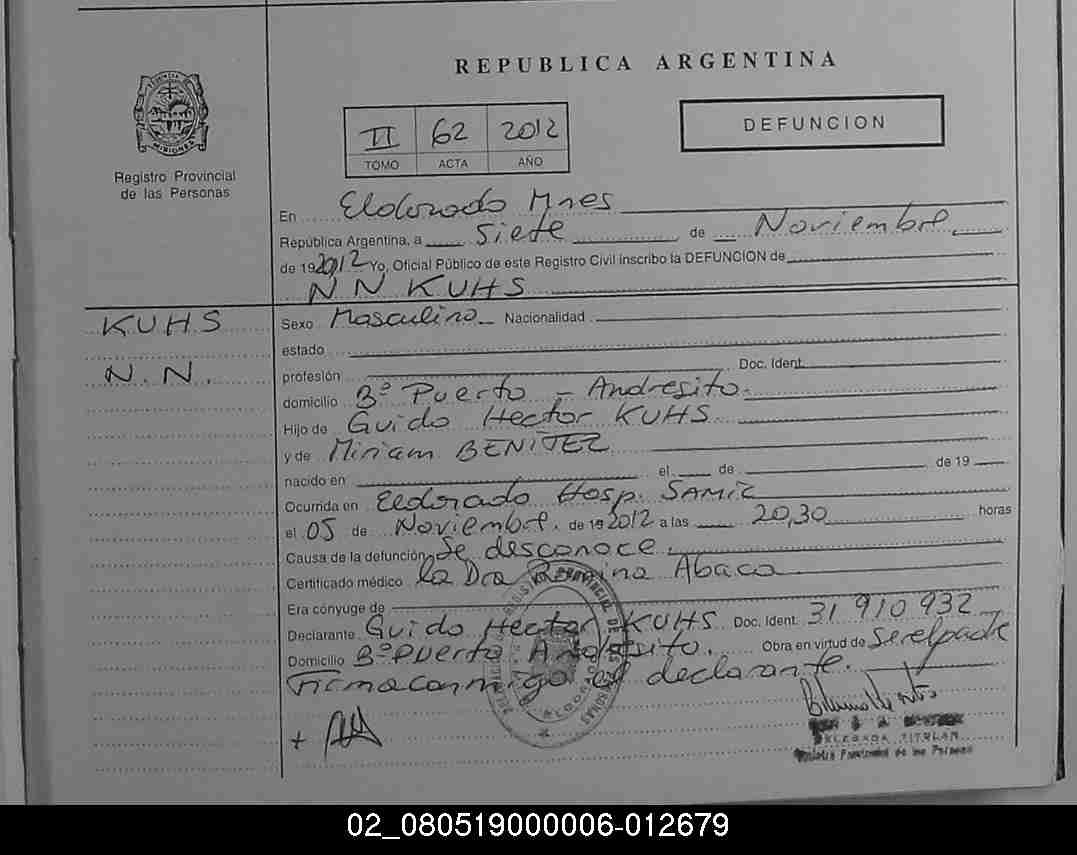 REPUBLICA ARGENTINA
II 62 2012
TOMO ACTA AÑO
DEFUNCION
Registro Provincial
de las Personas
En Eldorado Mnes
República Argentina, a Siete de Noviembre
de 192012 Yo, Oficial Público de este Registro Civil inscribo la DEFUNCION de
N N KUHS
KUHS
N. N.
Sexo Masculino Nacionalidad
estado
profesión Doc. Ident.
domicilio Bº Puerto - Andresito.
Hijo de Guido Hector KUHS
y de Miriam BENITEZ
nacido en el de de 19
Ocurrida en Eldorado Hosp. SAMIC
el 05 de Noviembre. de 192012 a las 20,30 horas
Causa de la defunción Se desconoce.
Certificado médico la Dra Romina Abaca
Era cónyuge de
Declarante Guido Hector KUHS Doc. Ident. 31 910 932
Domicilio Bº Puerto Andresito. Obra en virtud de Ser el padre
Firma conmigo el declarante.
DELEGADA TITULAR
Registro Provincial de las Personas
02_080519000006-012679